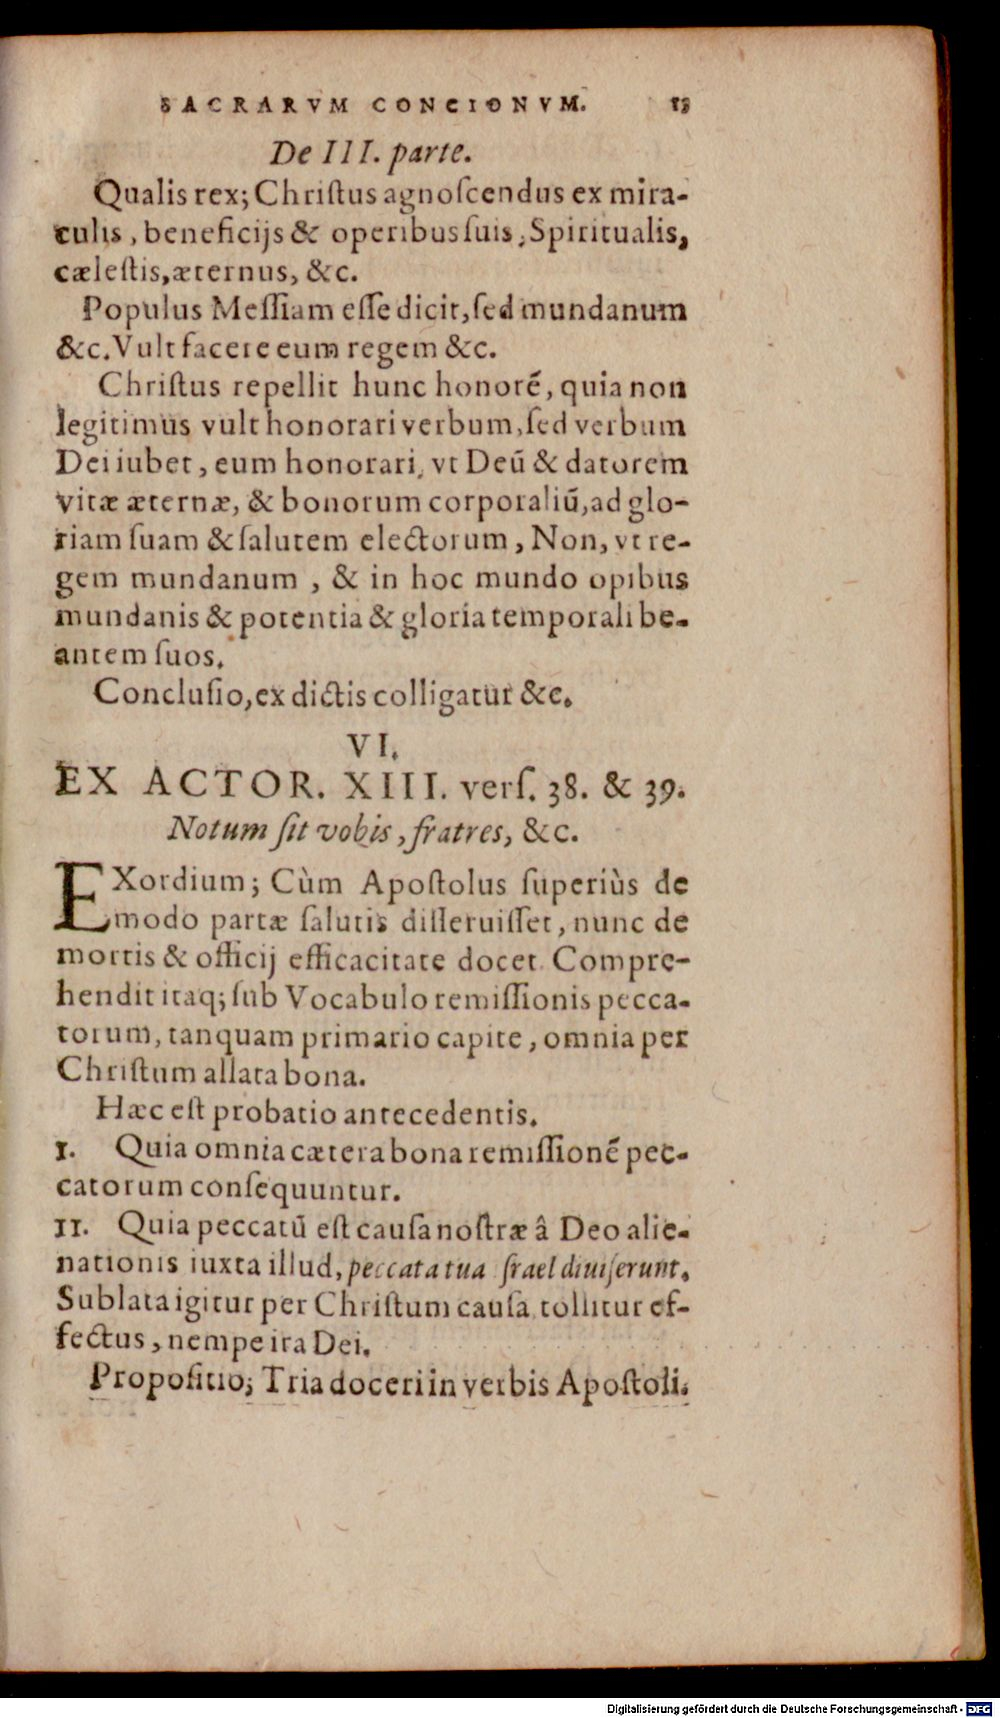 SACRARVM CONCIONVM. 13
De III. parte.
Qualis rex; Chriſtus agnoſcendus ex mira-
culis, beneficijs & operibus ſuis, Spiritualis,
cæleſtis, æternus, &c.
Populus Meſſiam eſſe dicit, ſed mundanum
&c. Vult facere eum regem &c.
Chriſtus repellit hunc honorẽ, quia non
legitimus vult honorari verbum, ſed verbum
Dei iubet, eum honorari, vt Deũ & datorem
vitæ æternæ, & bonorum corporaliũ, ad glo-
riam ſuam & ſalutem electorum, Non, vt re-
gem mundanum, & in hoc mundo opibus
mundanis & potentia & gloria temporali be-
antem ſuos.
Concluſio, ex dictis colligatur &c.
VI.
EX ACTOR. XIII. verſ. 38. & 39.
Notum ſit vobis, fratres, &c.
EXordium; Cùm Apoſtolus ſuperiùs de
modo partæ ſalutis diſſeruiſſet, nunc de
mortis & officij efficacitate docet. Compre-
hendit itaq; ſub Vocabulo remiſſionis pecca-
torum, tanquam primario capite, omnia per
Chriſtum allata bona.
Hæc eſt probatio antecedentis.
I. Quia omnia cætera bona remiſſionẽ pec-
catorum conſequuntur.
II. Quia peccatũ eſt cauſa noſtræ â Deo alie-
nationis iuxta illud, peccata tua ſrael diuiſerunt,
Sublata igitur per Chriſtum cauſa tollitur ef-
fectus, nempe ira Dei.
Propoſitio; Tria doceri in verbis Apoſtoli.
Digitalisierung gefördert durch die Deutsche Forschungsgemeinschaft - DFG